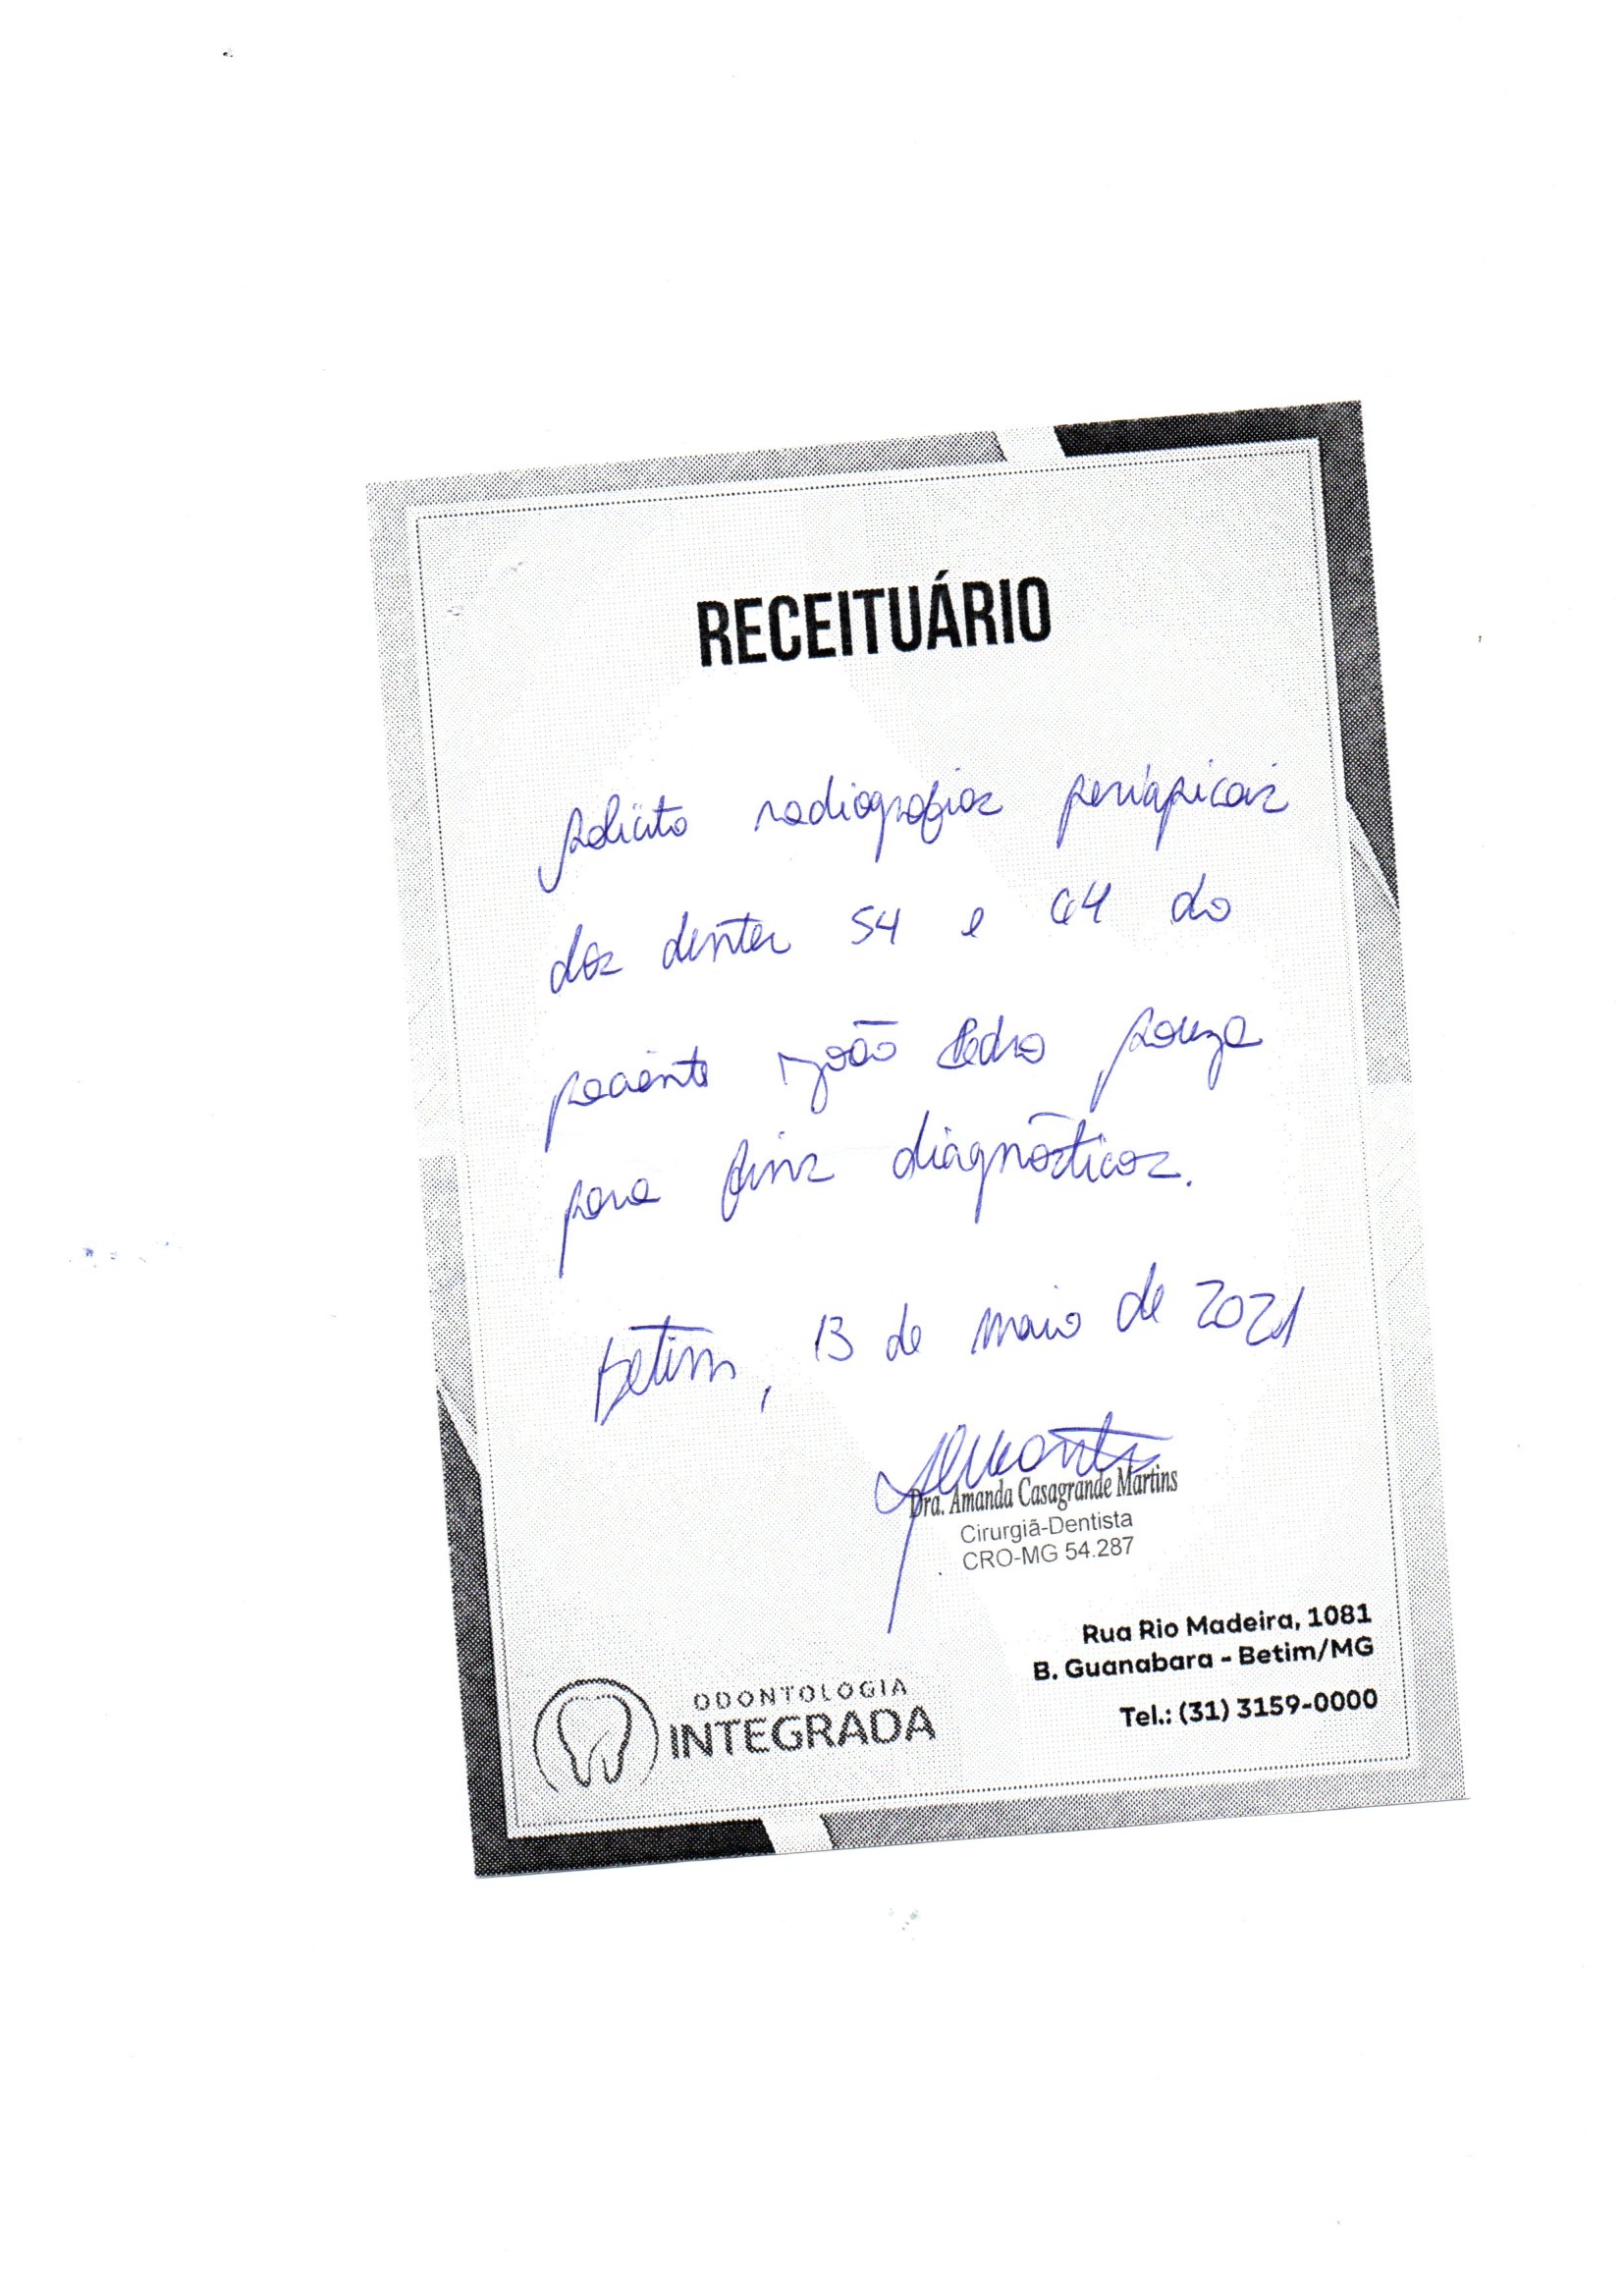 RECEITUÁRIO
Solicito radiografias periapicais
dos dentes 54 e 64 do
paciente João Pedro Souza
para fins diagnósticos.
Betim, 13 de maio de 2021
Dra. Amanda Casagrande Martins
Cirurgiã-Dentista
CRO-MG 54.287
Rua Rio Madeira, 1081
B. Guanabara - Betim/MG
Tel.: (31) 3159-0000
ODONTOLOGIA
INTEGRADA